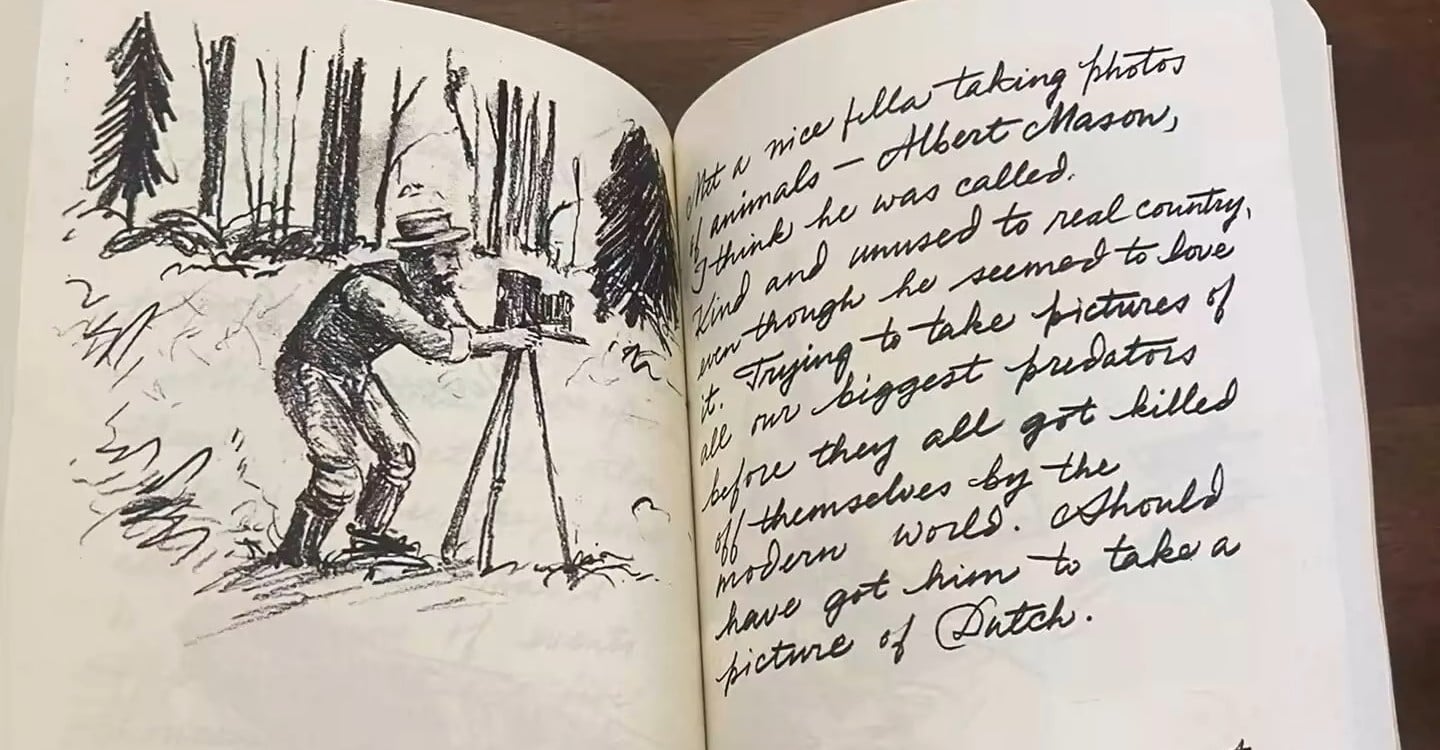 Met a nice fella taking photos
of animals — Albert Mason,
I think he was called.
Kind and unused to real country,
even though he seemed to love
it. Trying to take pictures of
all our biggest predators
before they all got killed
off themselves by the
modern world. Should
have got him to take a
picture of Dutch.